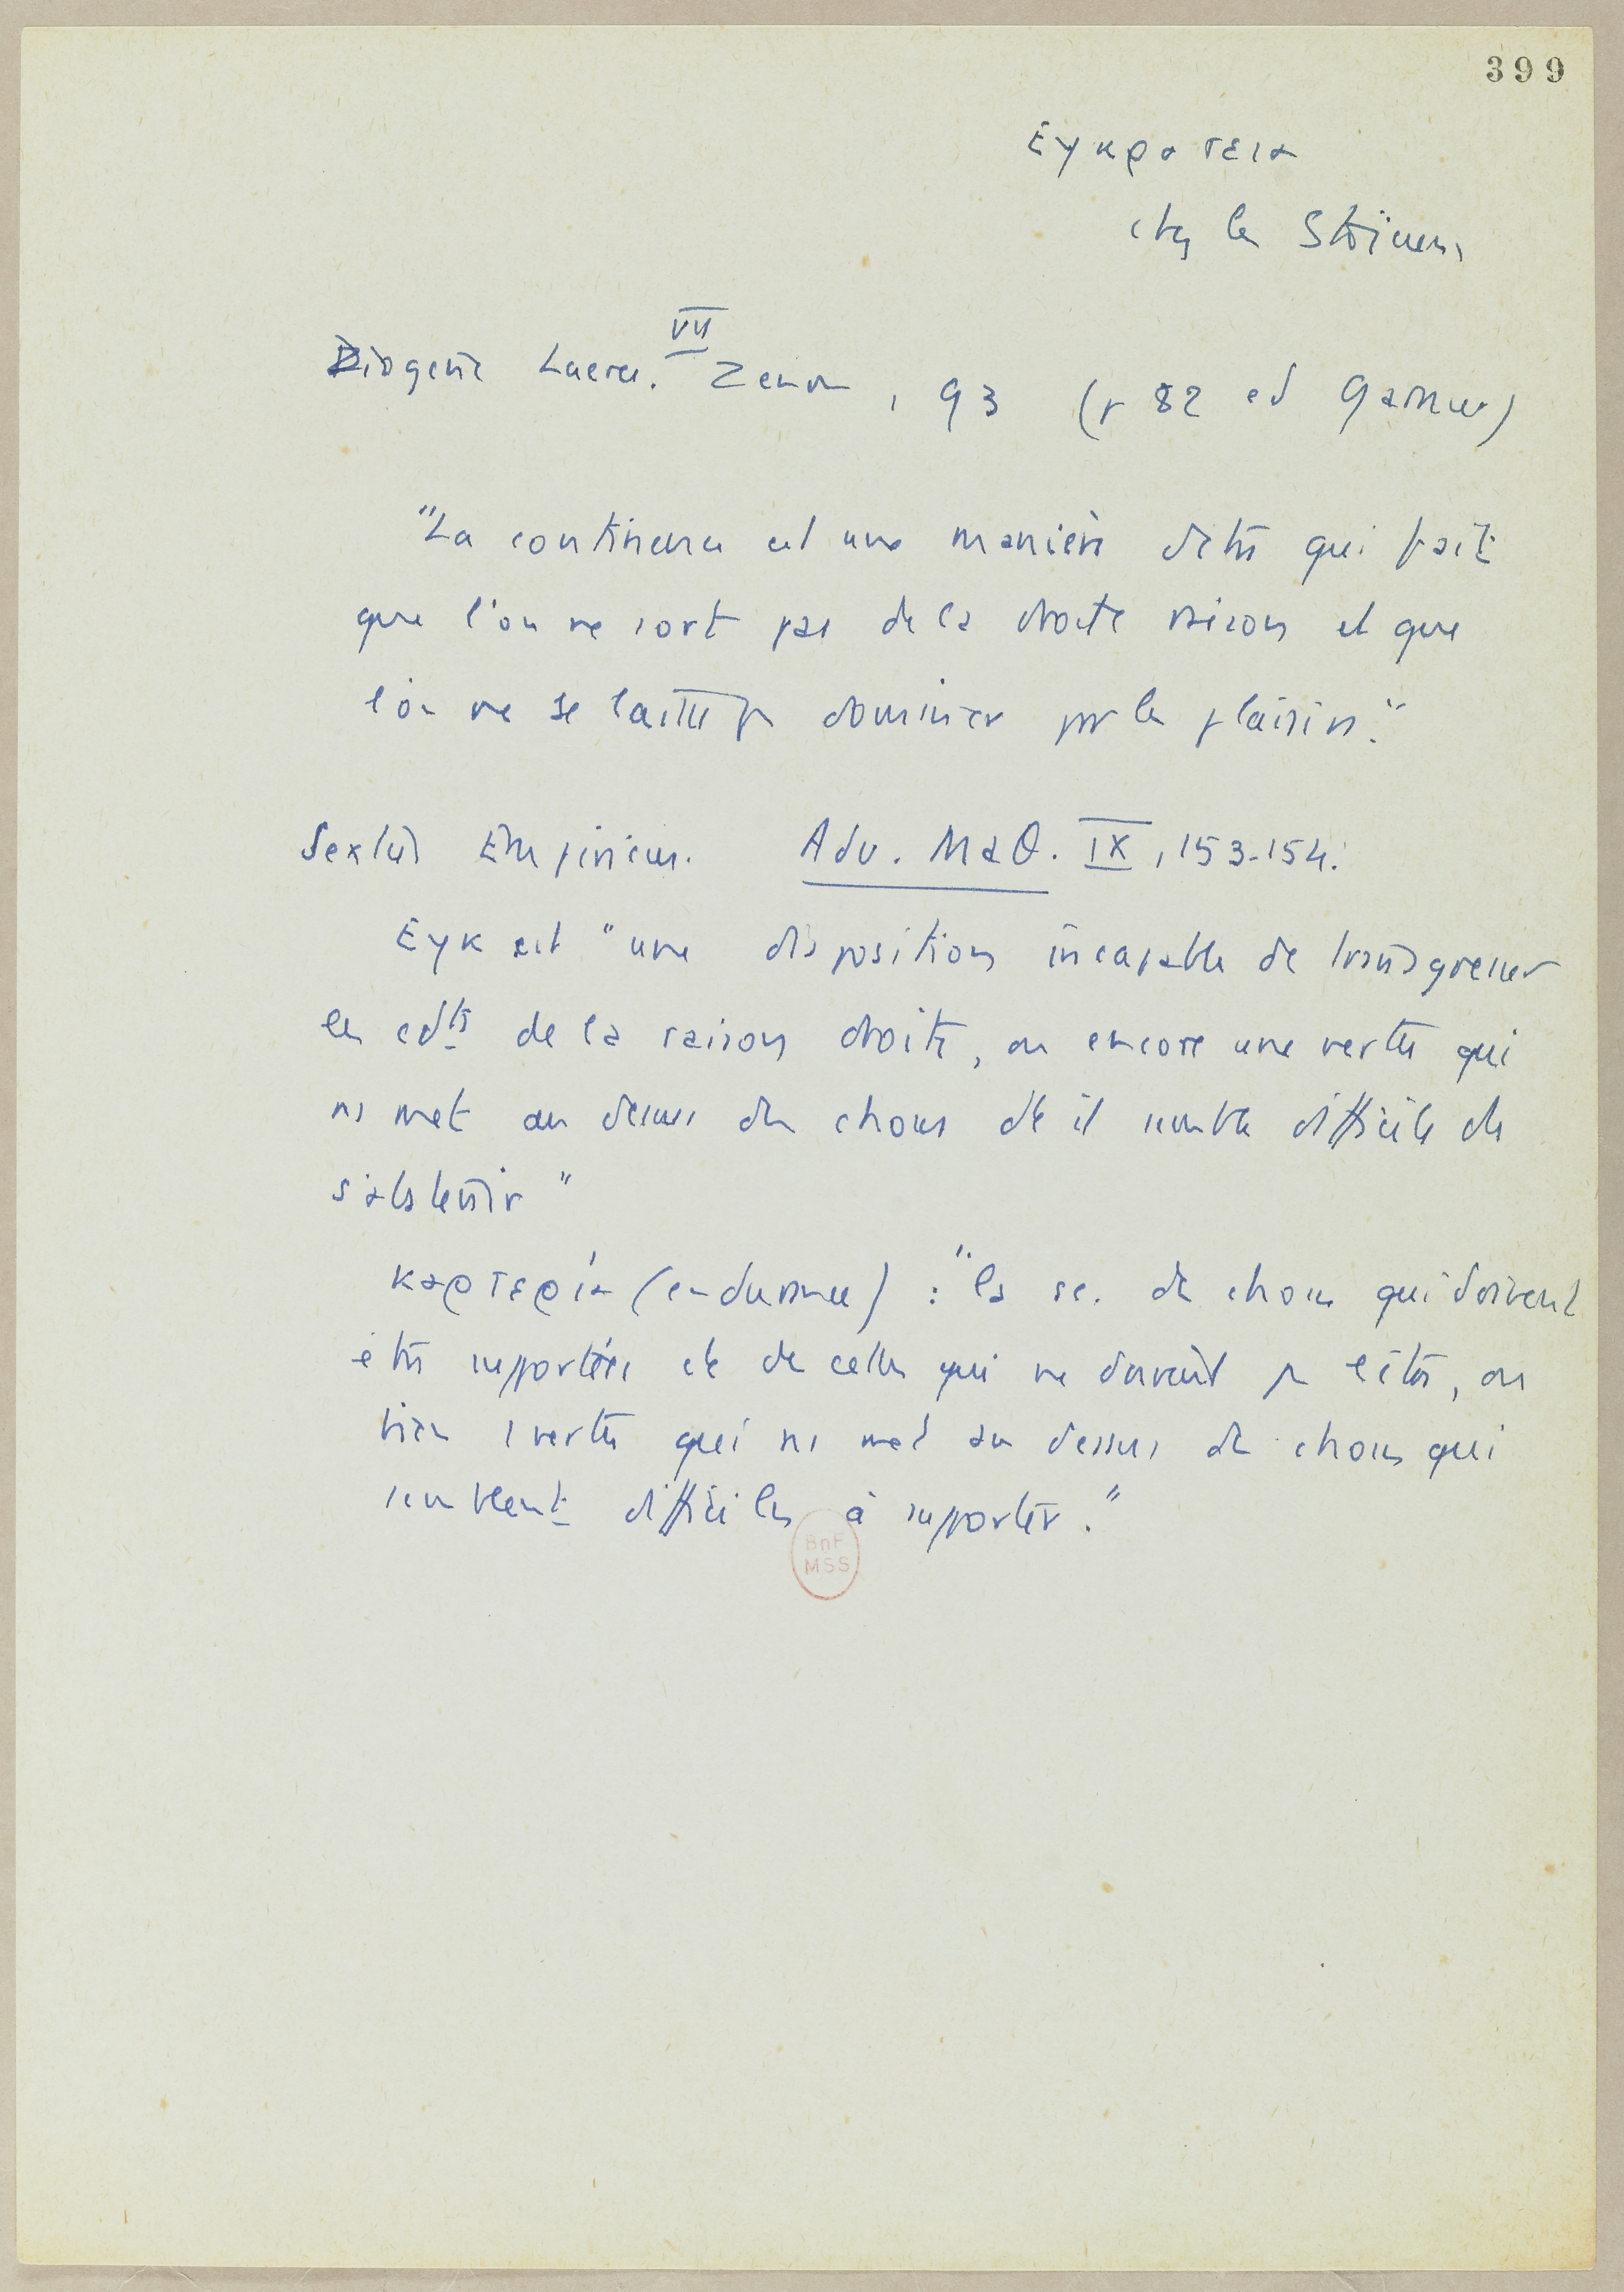 399
Εγκρατεια
chez les Stoïciens
VII
Diogène Laerce. Zenon, 93 (p 82 ed Garnier)
"La continence est une manière d'être qui fait
que l'on ne sort pas de la droite raison et que
l'on ne se laisse p dominer par les plaisirs."
Sextus Empiricus. Adv. Maθ. IX, 153-154.
Εγκ est "une disposition incapable de transgresser
les cdts de la raison droite, ou encore une vertu qui
ns met au dessus des choses dt il semble difficile de
s'abstenir"
καρτερία (endurance) : "la sc. des choses qui doivent
être supportées et de celles qui ne doivent p l'être, ou
bien 1 vertu qui ns met au dessus des choses qui
semblent difficiles à supporter."
BnF
MSS